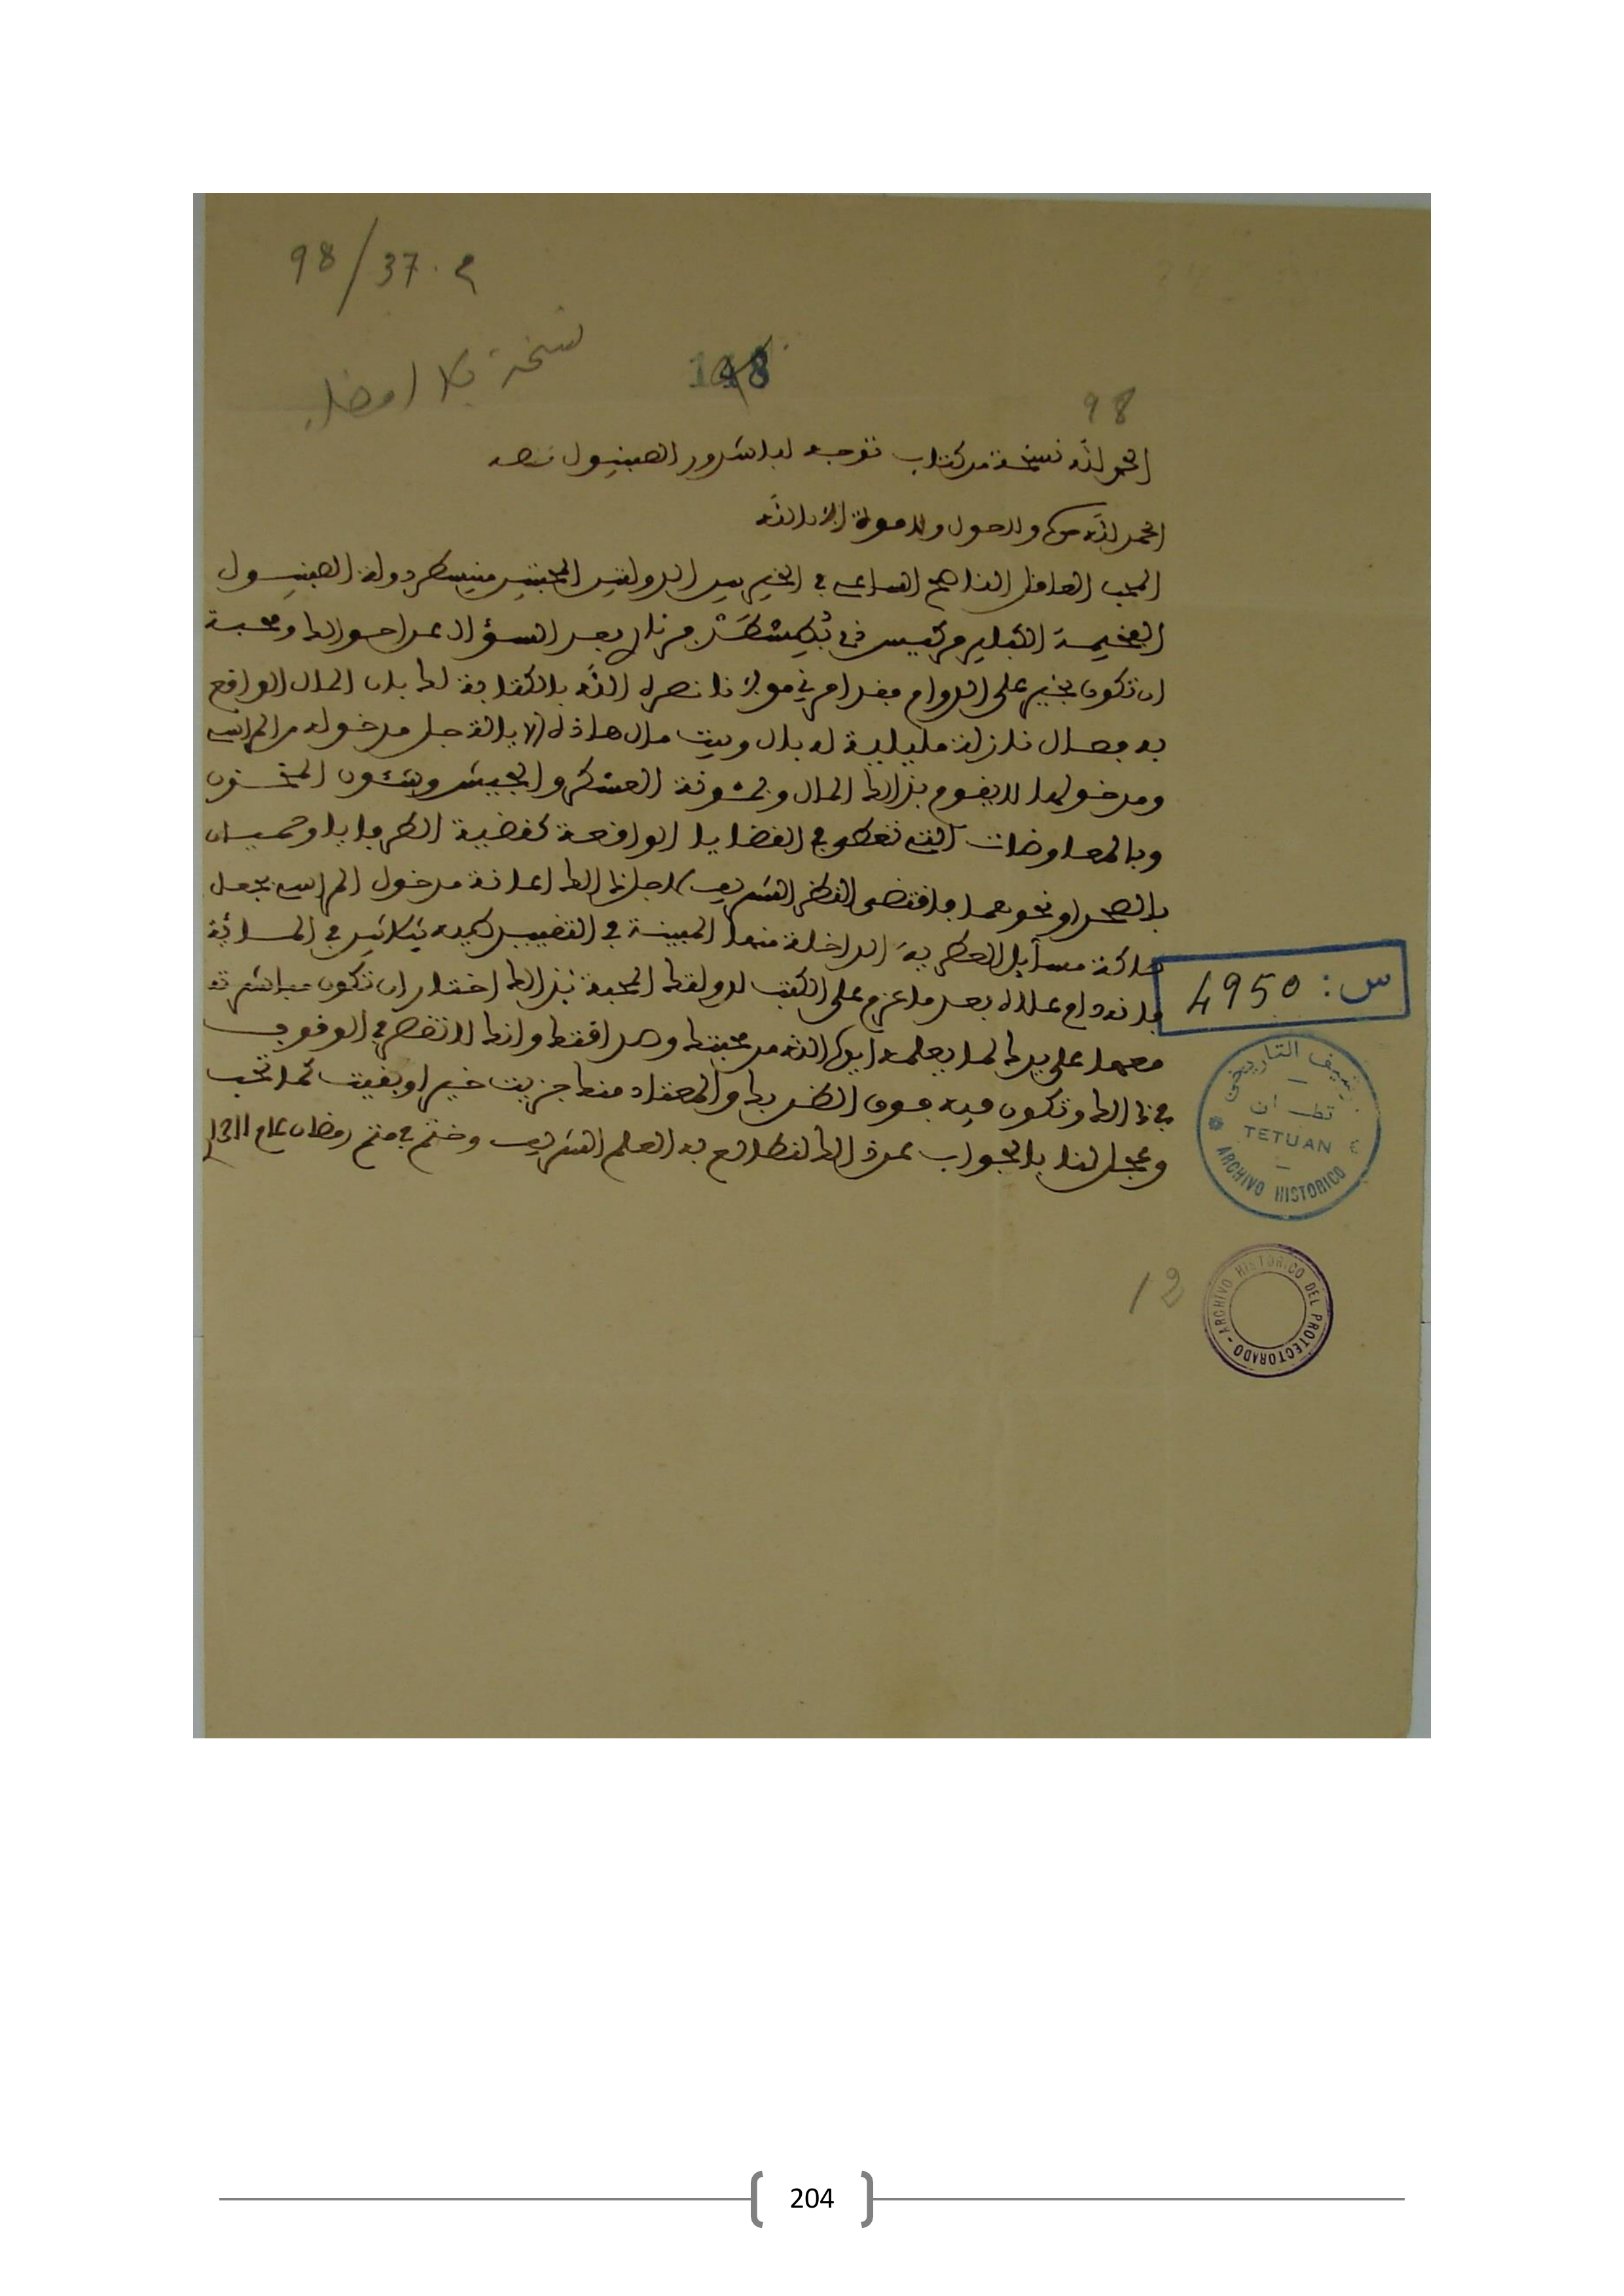 98/37. م
نسخة بلا امضاء
148
98
الحمد لله نسخة من كتاب توجه لباشدور الصبنيول نصه
الحمد لله وحده ولا حول ولا قوة الا بالله
المحب العاقل الناصح الساعي في الخير بين الدولتين المحبتين منيسطر دولة الصبنيول
الفخيمة الكبلير بعد السؤال عن احوالك ومحبة
ان تكون بخير على الدوام فقد امرني مولانا نصره الله بالكتابة لك بان المال الواقع
به فصال نازلة مليلية له بال وبيت مال هاذه الايالة جل مدخوله من المراسي
ومدخولها لا يقوم بذالك المال وبمئونة العسكر والجيش وشئون المخزن
وبالمعاوضات التي تعطى في القضايا الواقعة كقضية
بالصحرا ونحوهما فاقتضى النظر الشريف لاجل ذالك اعانة مدخول المراسي بجعل
صاكة مسآيل العطرية الداخلة منها المبينة في التقييد طيه ثلاثين في المائة
فانه دام علاه بعد ما عزم على الكتب لدولتك المحبة بذالك اختار ان تكون مباشرة
معها على يدك لما يعلمه ايده الله من محبتك وصداقتك وانك لا تقصر في الوقوف
في ذالك وتكون فيه فوق الظن بك والمعتاد منك جزيت خيرا وبقيت كما تحب
وعجل لنا بالجواب عن ذالك لنطالع به العلم الشريف وختم في متم رمضان عام 1311
س: 4950
تطوان
TETUAN
ARCHIVO HISTORICO
12
ARCHIVO HISTORICO DEL PROTECTORADO
204